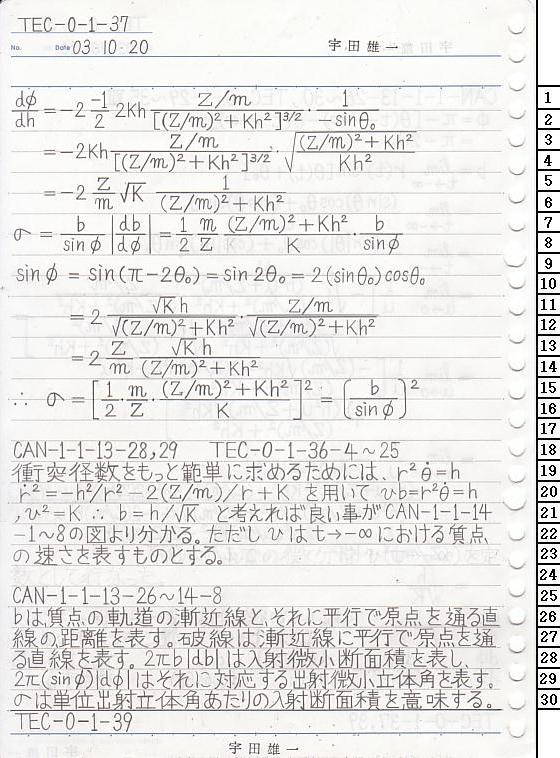 TEC-0-1-37
No. Date 03・10・20 宇田雄一
dφ/dh = -2 (-1/2) 2Kh (Z/m)/[(Z/m)²+Kh²]^{3/2} · 1/(-sinθ₀)
= -2Kh (Z/m)/[(Z/m)²+Kh²]^{3/2} · √(((Z/m)²+Kh²)/(Kh²))
= -2 (Z/m) √K 1/((Z/m)²+Kh²)
σ = b/sinφ |db/dφ| = (1/2)(m/Z) ((Z/m)²+Kh²)/K · b/sinφ
sinφ = sin(π-2θ₀) = sin2θ₀ = 2(sinθ₀)cosθ₀
= 2 (√K h)/√((Z/m)²+Kh²) · (Z/m)/√((Z/m)²+Kh²)
= 2 (Z/m) (√K h)/((Z/m)²+Kh²)
∴ σ = [(1/2)·(m/Z)·((Z/m)²+Kh²)/K]² = (b/sinφ)²
CAN-1-1-13-28,29 TEC-0-1-36-4~25
衝突径数をもっと範単に求めるためには、r²θ̇=h
ṙ²=-h²/r²-2(Z/m)/r+K を用いて υb=r²θ̇=h
,υ²=K ∴ b=h/√K と考えれば良い事がCAN-1-1-14
-1~8の図より分かる。ただし υ は t→-∞ における質点
の速さを表すものとする。
CAN-1-1-13-26~14-8
bは,質点の軌道の漸近線と,それに平行で原点を通る直
線の,距離を表す。破線は,漸近線に平行で原点を通
る直線を表す。2πb|db|は入射微小断面積を表し、
2π(sinφ)|dφ|はそれに対応する出射微小立体角を表す。
σは単位出射立体角あたりの入射断面積を意味する。
TEC-0-1-39
宇田雄一
1
2
3
4
5
6
7
8
9
10
11
12
13
14
15
16
17
18
19
20
21
22
23
24
25
26
27
28
29
30